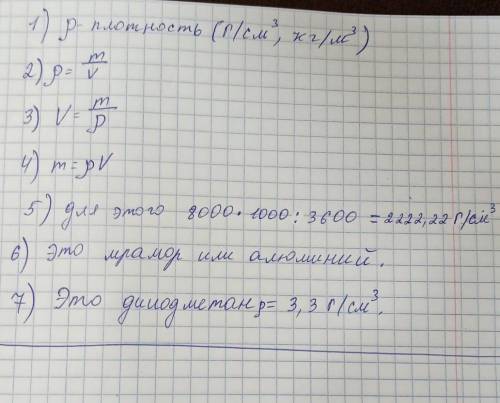 1) ρ - плотность (г/см³, кг/м³)
2) ρ = m/V
3) V = m/ρ
4) m = ρV
5) для этого 8000 · 1000 : 3600 = 2222,22 г/см³
6) Это мрамор или алюминий.
7) Это дииодметан ρ = 3,3 г/см³.